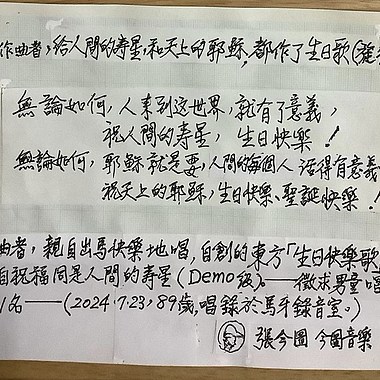 作曲者，給人間的寿星，和天上的耶穌，都作了生日歌（
無論如何，人来到这世界，就有了意義，
祝人間的寿星，生日快樂！
無論如何，耶穌就是要，人間的每個人活得有意義
祝天上的耶穌，生日快樂、聖誕快樂！
曲者，親自出馬快樂地唱，自創的東方「生日快樂歌
自祝福同是人間的寿星（Demo級）。——徵求男童唱
1名——（2024.7.23，89歲，唱錄於馬牙錄音室。）
張今圓 今圓音樂